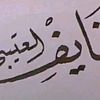 نايف العتيبي